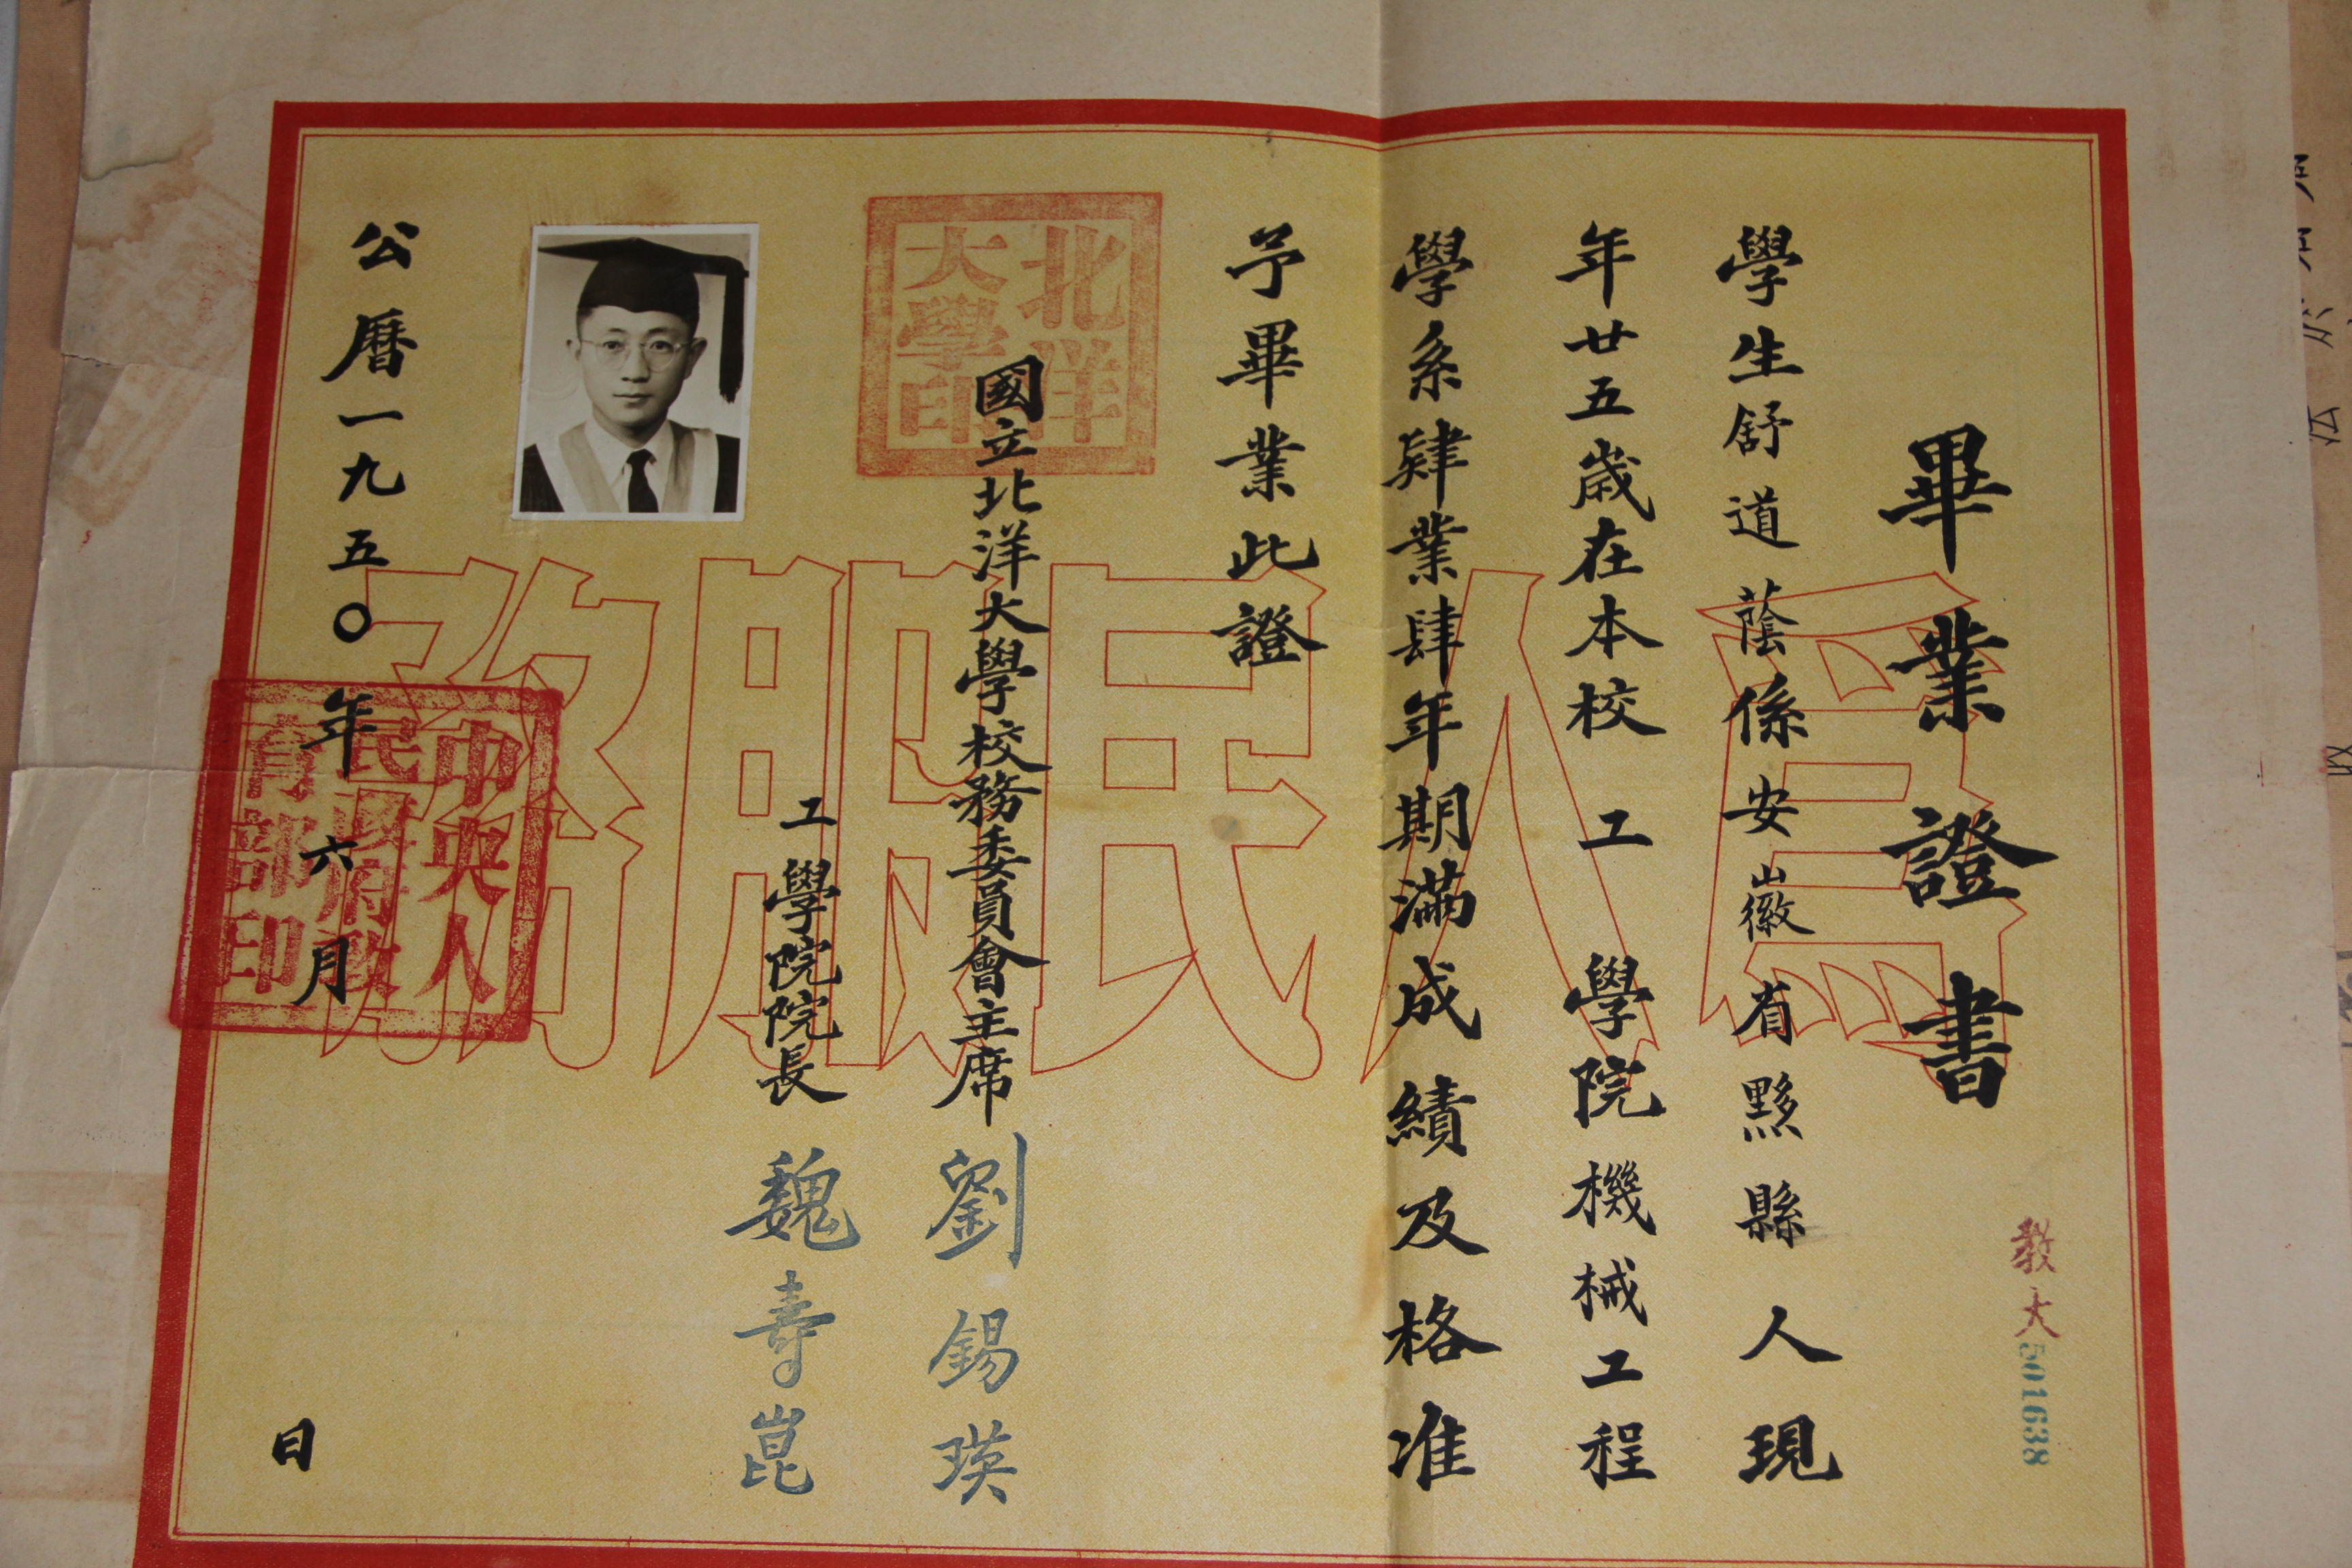 畢業證書
教大501638
學生舒道蔭係安徽省黟縣人現
年廿五歲在本校工學院機械工程
學系肄業肆年期滿成績及格准
予畢業此證
北洋
大學印
國立北洋大學校務委員會主席劉錫瑛
工學院院長魏壽崑
公曆一九五〇年六月日
中央人
民政府教
育部印
爲人民服務